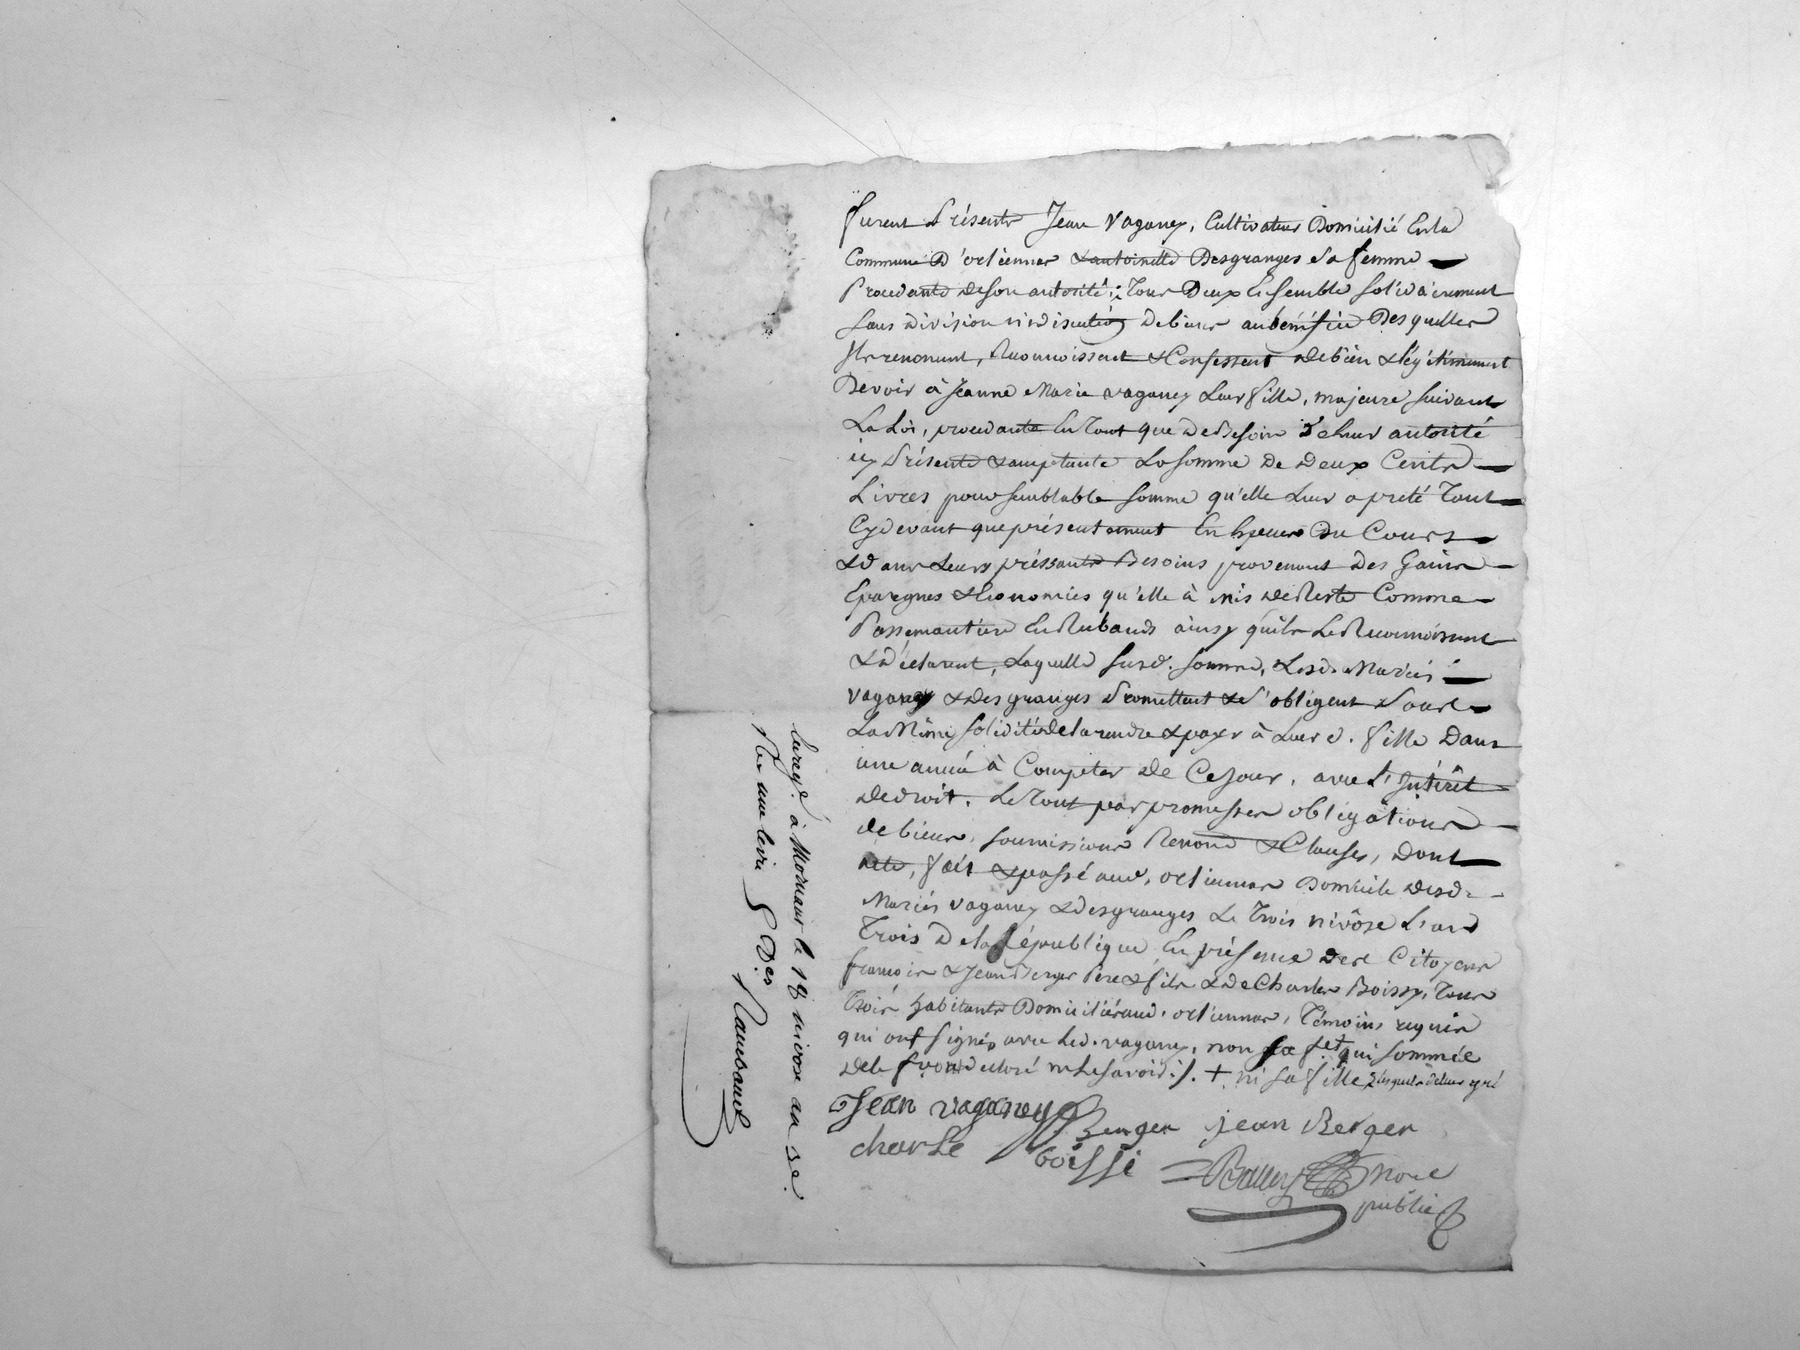 furent Présents Jean Vaganey, Cultivateur Domicilié En la
Commune D'orliennas & antoinette Desgranges Sa femme
Procedante de Son autorité; Tous Deux Ensemble Solidairement
Sans Division ni discution De biens au bénéfice Desquelles
Ils renoncent, Reconnoissent & Confessent de bien & légitimement
Devoir à Jeanne Marie vaganey Leur fille, majeure suivant
La Loi, procedante En Tant que De Besoin De leur autorité
icy Présente & acceptante La somme De Deux Cents
Livres pour semblable somme qu'elle Leur a preté Tant
Cydevant que présentement En Especes Du Cours
& dans Leurs préssants Besoins provenant Des Gains
Epargnes & Economies qu'elle à mis de Reste Comme
Passemantiere En Rubands ainsy qu'ils Le Reconnoissent
& Déclarent, Laquelle susd. somme, Lesd. Mariés
vaganey & Desgranges Promettent & s'obligent sous
La Même solidité de la rendre & payer à Leurd. fille Dans
une année à Compter de Ce Jour, avec L'Intérêt
de droit. Le Tout par promesses obligations
de biens, soumissions Renons & Clauses, Dont
acte, fait & passé aud. orliennas Domicile desd.
Mariés vaganey & desgranges Le Trois nivôse L'an
Trois De la République En présence des Citoyens
françois & Jean Berger Pere & fils & de Charles Boissy, Tous
Trois habitants Domiciliés aud. orliennas, Témoins requis
qui ont signés avec Led. vaganey, non sa fe qui sommée
De le f De declaré ne le savoir ./. + ni sa fille
Jean vaganey Berger jean Berger
charle boissi
Nore
public
Enregé. à Mornant le 18 nivose an 3e.
Reçu une livre 5 Des